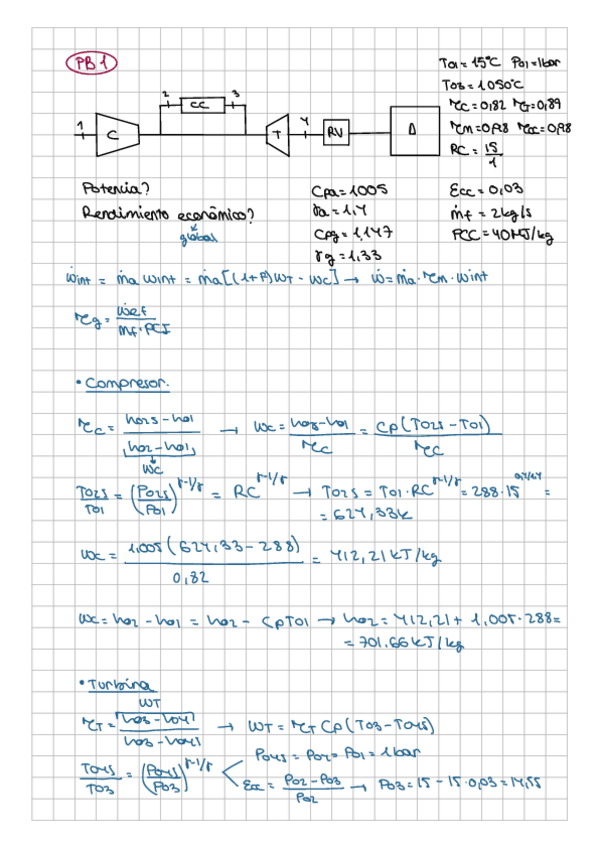 PB 1
T01 = 15ºC P01 = 1bar
T03 = 1050ºC
ηC = 0,82 ηT = 0,89
ηm = 0,98 ηcc = 0,98
RC = 15/1
1 C 2 CC 3 T 4 RV Δ
Potencia?
Rendimiento económico?
global
Cpa = 1005
γa = 1,4
Cpg = 1,147
γg = 1,33
Ecc = 0,03
ṁf = 2kg/s
PCC = 40MJ/kg
Ẇint = ṁa wint = ṁa[(1+F)WT - WC] → Ẇ = ṁa·ηm·Wint
ηg = Ẇef / ṁf·PCI
• Compresor.
ηC = (h02s - h01) / (h02 - h01) → WC = (h02s - h01) / ηC = CP(T02s - T01) / ηC
WC
T02s/T01 = (P02s/P01)^γ-1/γ = RC^γ-1/γ → T02s = T01·RC^γ-1/γ = 288·15^0,4/1,4 =
= 624,33K
WC = 1,005(624,33 - 288) / 0,82 = 412,21 kJ/kg
WC = h02 - h01 = h02 - CPT01 → h02 = 412,21 + 1,005·288 =
= 701.66 kJ/kg
• Turbina
WT
ηT = (h03 - h04) / (h03 - h04s) → WT = ηT CP(T03 - T04s)
T04s/T03 = (P04s/P03)^γ-1/γ
P04s = P04 = P01 = 1bar
Ecc = (P02 - P03) / P02 → P03 = 15 - 15·0,03 = 14,55